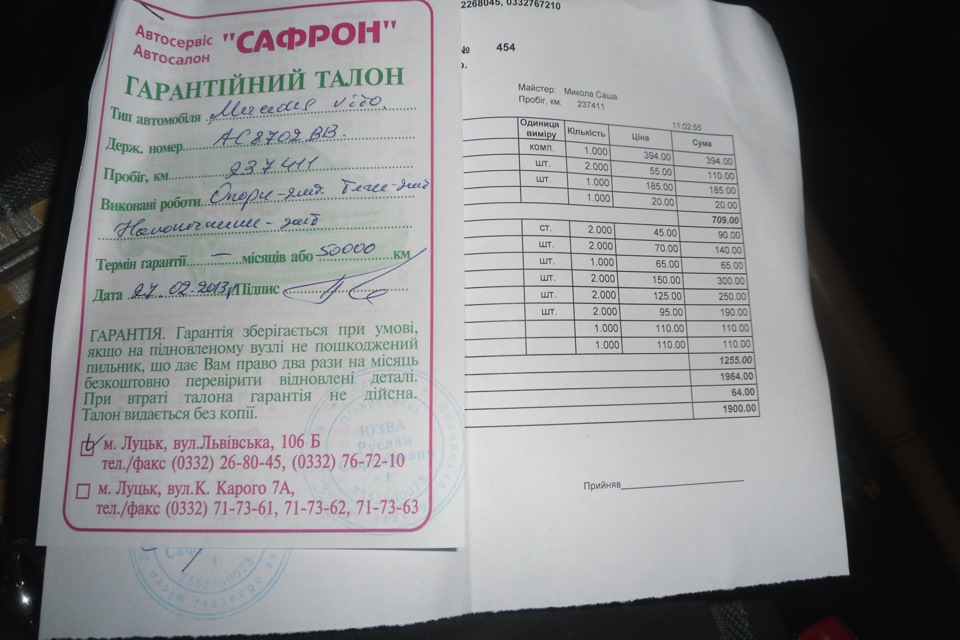 Автосервіс
Автосалон
"САФРОН"
ГАРАНТІЙНИЙ ТАЛОН
Тип автомобіля Mercedes Vito
Держ. номер АС8702ВВ
Пробіг, км 237411
Виконані роботи Опори-2шт. Тяги-2шт
Наконечники-2шт
Термін гарантії — місяців або 50000 км
Дата 27.02.2013р Підпис
ГАРАНТІЯ. Гарантія зберігається при умові,
якщо на підновленому вузлі не пошкоджений
пильник, що дає Вам право два рази на місяць
безкоштовно перевірити відновлені деталі.
При втраті талона гарантія не дійсна.
Талон видається без копії.
м. Луцьк, вул.Львівська, 106 Б
тел./факс (0332) 26-80-45, (0332) 76-72-10
м. Луцьк, вул.К. Карого 7А,
тел./факс (0332) 71-73-61, 71-73-62, 71-73-63
ЮЗВА
Руслан
2552600073
2268045, 0332767210
№ 454
Майстер: Микола Саша
Пробіг, км: 237411
11:02:55
Одиниця виміру Кількість Ціна Сума
комп. 1.000 394.00 394.00
шт. 2.000 55.00 110.00
шт. 1.000 185.00 185.00
1.000 20.00 20.00
709.00
ст. 2.000 45.00 90.00
шт. 2.000 70.00 140.00
шт. 1.000 65.00 65.00
шт. 2.000 150.00 300.00
шт. 2.000 125.00 250.00
шт. 2.000 95.00 190.00
1.000 110.00 110.00
1.000 110.00 110.00
1255.00
1964.00
64.00
1900.00
Прийняв